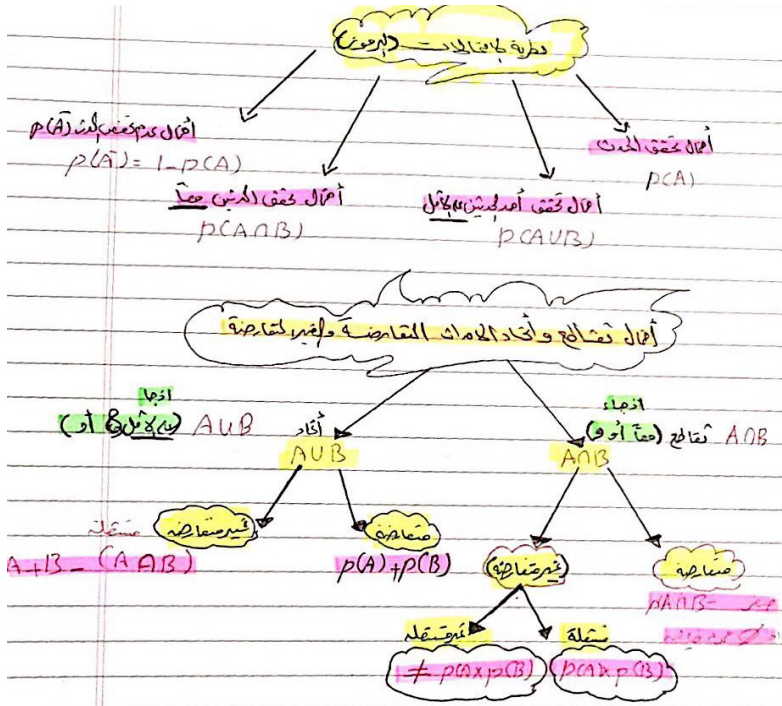 نظرية الاحتمالات (البرهون)
أحتمال تحقق الحدث
p(A)
أحتمال تحقق أحد الحدثين على الأقل
p(A∪B)
أحتمال تحقق الحدثين معاً
p(A∩B)
أحتمال عدم تحقق الحدث p(A̅)
p(A̅) = 1-p(A)
أحتمال تقاطع وأتحاد الحادثات المتعارضة والغير المتعارضة
اذجاء
A∩B تقاطع (معاً أو و)
A∩B
متعارضة
p A∩B =
غير متعارضة
مستقلة
p(A)x p(B)
غير مستقله
≠ p(A)x p(B)
اذجا
A∪B (على الأقل أو)
أتحاد
A∪B
متعارضة
p(A)+p(B)
غير متعارضه
مستقله
A+B-(A∩B)